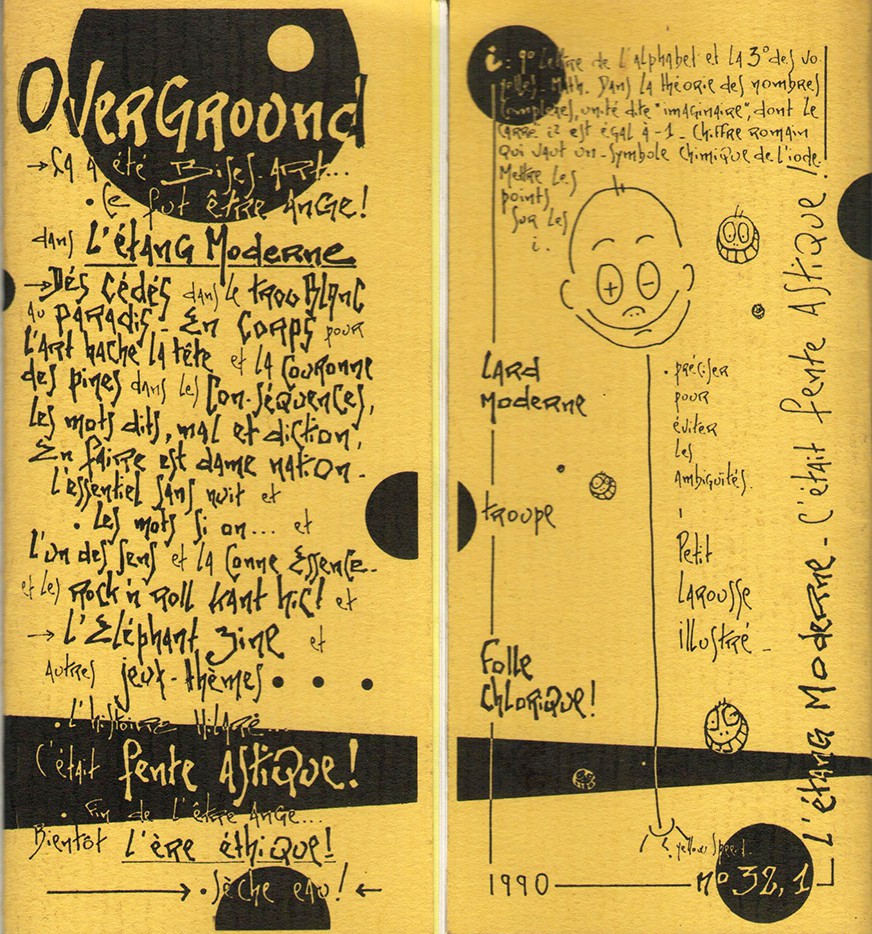 Overground
→ Ça a été Bises-Art...
• Ce fut être Ange!
dans L'étang Moderne
→ Dés cédés dans le trou Blanc
au paradis - En Corps pour
l'Art hache la tête et la Couronne
des pines dans les Con-séquences,
les mots dits, mal et diction,
En faire est dame nation -
L'essentiel sans nuit et
• Les mots si on... et
l'un des sens et la Conne Essence -
et les Rock'n'roll Kant hic! et
→ l'Eléphant zine et
Autres jeux-thèmes • • •
• L'histoire Hilare...
C'était fente Astique!
• Fin de l'être Ange...
Bientôt L'ère éthique!
→ • Sèche eau! ←
i : 9º lettre de l'alphabet et la 3º des vo-
yelles - Math. Dans la théorie des nombres
complexes, unité dite "imaginaire", dont le
carré i2 est égal à -1 - Chiffre romain
qui vaut un - Symbole chimique de l'iode.
Mettre les
points
sur les
i.
+ -
Lard
Moderne
troupe
Folle
Chlorique!
• préciser
pour
éviter
les
ambiguïtés.
Petit
Larousse
illustré -
L'étang Moderne - C'était fente Astique!
yellow Speed
1990
nº 32,1